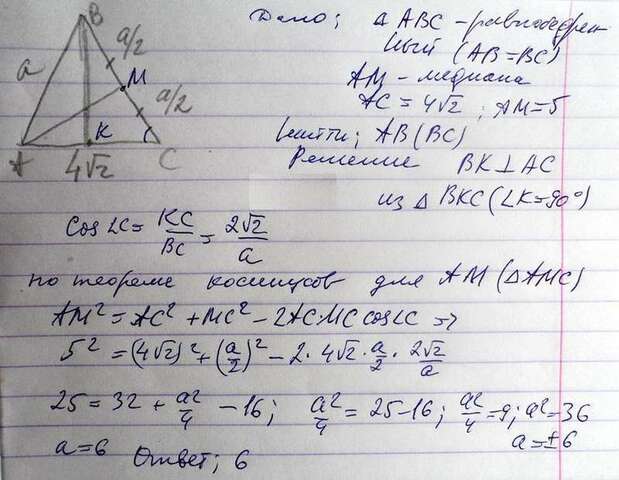 B
a/2
a
M
a/2
K
A
C
4√2
Дано; △ ABC - равнобедрен
ный (AB=BC)
AM - медиана
AC = 4√2 ; AM=5
Найти; AB (BC)
Решение BK⊥AC
из △ BKC (∠K=90°)
Cos∠C = KC/BC = 2√2/a
по теореме косинусов для AM (△AMC)
AM² = AC² + MC² - 2AC MC cos∠C ⇒
5² = (4√2)² + (a/2)² - 2 · 4√2 · a/2 · 2√2/a
25 = 32 + a²/4 - 16; a²/4 = 25-16; a²/4 = 9; a² = 36
a = 6 a = ±6
Ответ; 6